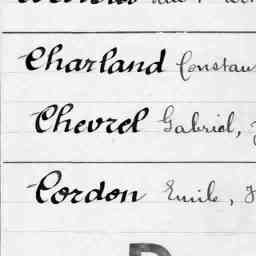 Charland Constan
Chevrel Gabriel,
Cordon Emile,
D